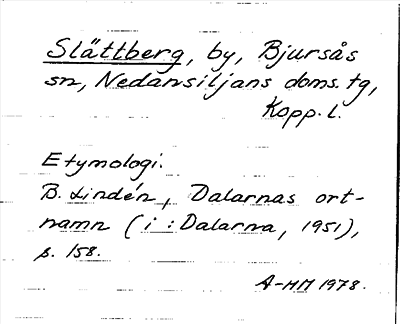 Slättberg, by, Bjursås
sn, Nedansiljans doms. tg,
Kopp. l.
Etymologi.
B. Lindén, Dalarnas ort-
namn (i : Dalarna, 1951),
s. 158.
A-MM 1978.